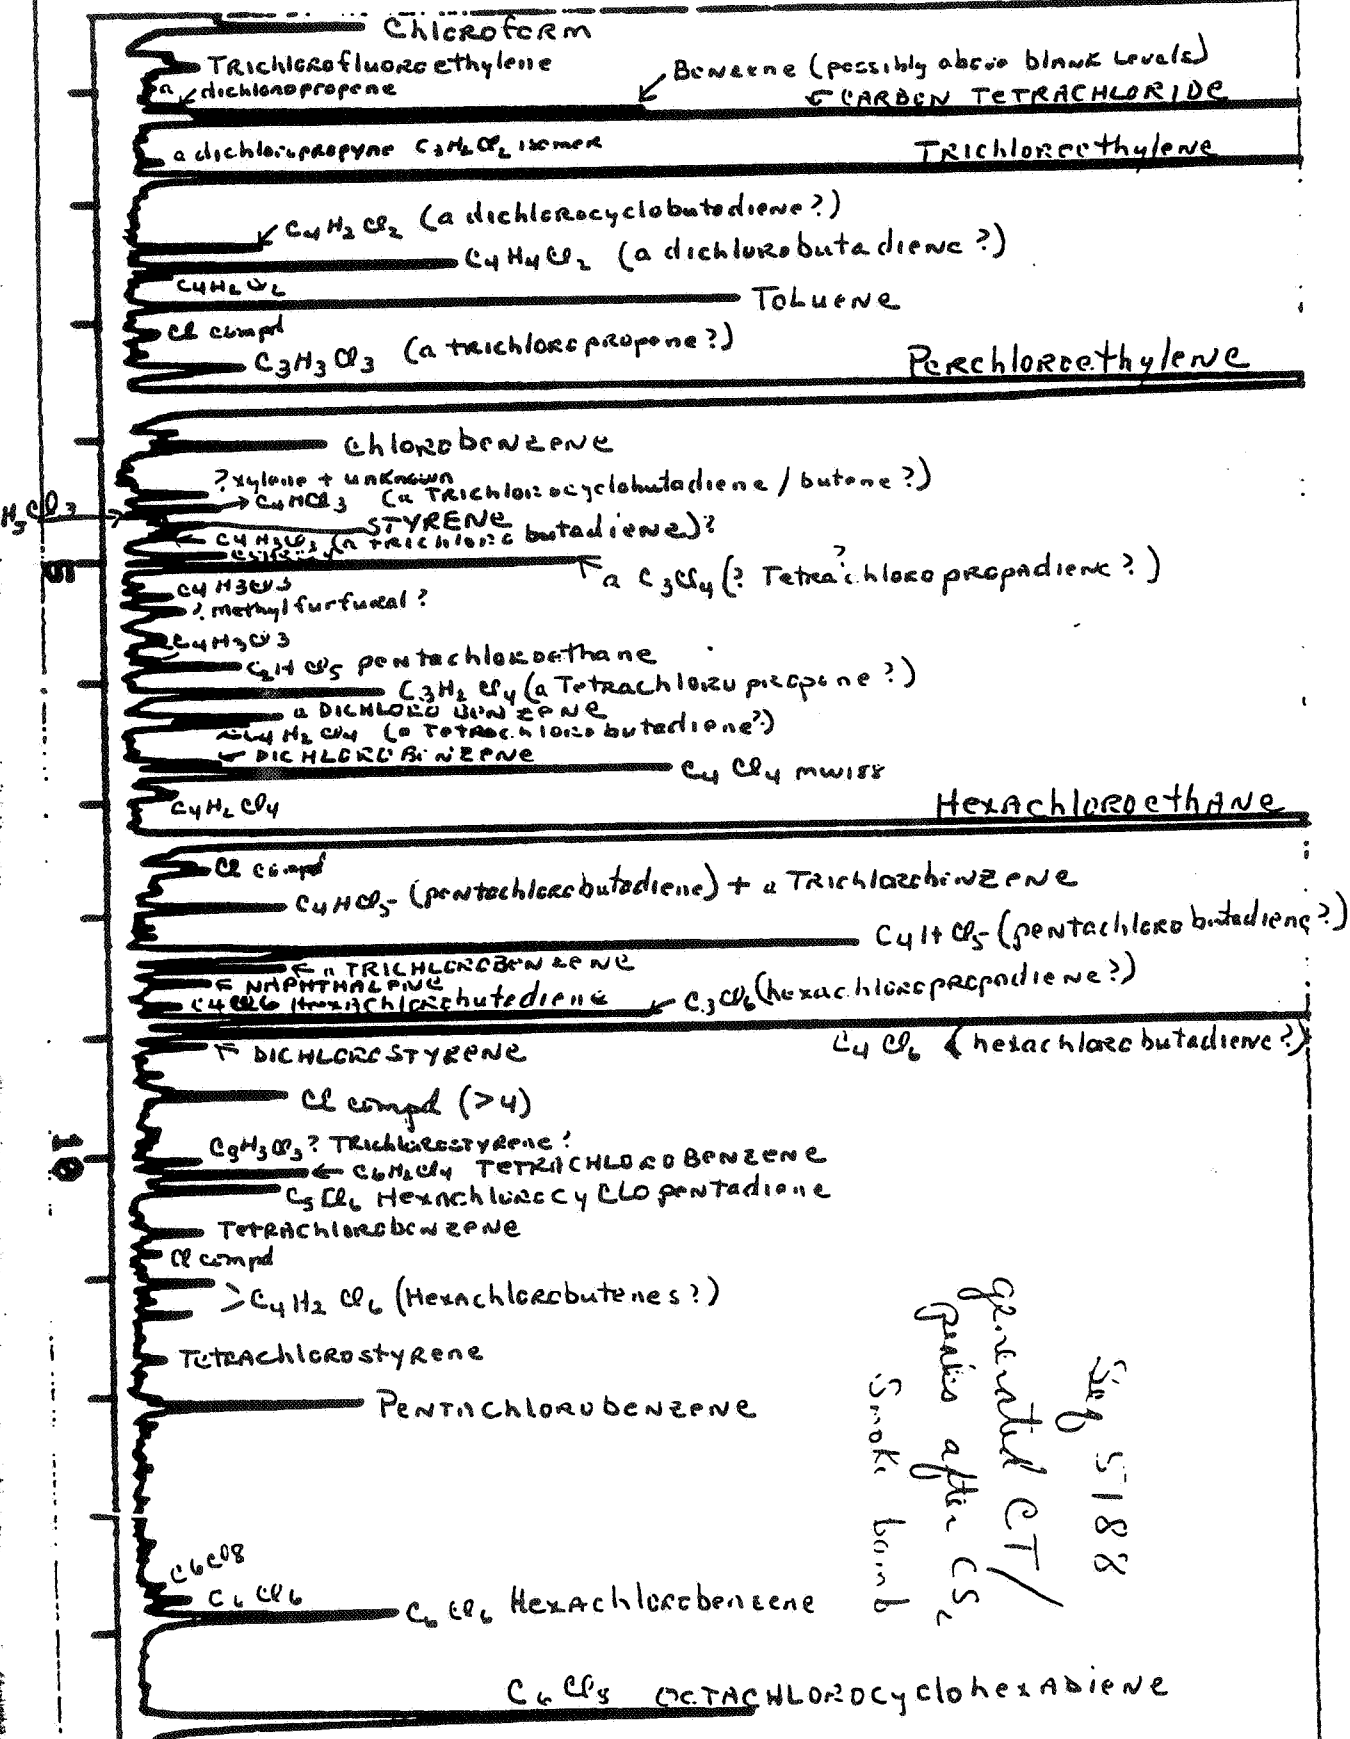 Chloroform
Trichlorofluoroethylene
Benzene (possibly above blank levels)
a dichloropropene
CARBON TETRACHLORIDE
a dichloropropyne C3H2Cl2 isomer
Trichloroethylene
C4H2Cl2 (a dichlorocyclobutadiene?)
C4H4Cl2 (a dichlorobutadiene?)
C4H2Cl2
Toluene
Cl compd
C3H3Cl3 (a trichloropropene?)
Perchloroethylene
Chlorobenzene
?xylene + unknown
C4HCl3 (a Trichlorocyclobutadiene/butene?)
H3Cl3
STYRENE
C4H3Cl3 (a trichlorobutadiene)?
a C3Cl4 (? Tetrachloropropadiene?)
5
C4H3Cl3
? methylfurfural?
C4H3Cl3
C2HCl5 pentachloroethane
C3H2Cl4 (a Tetrachloropropene?)
a DICHLOROBENZENE
C4H2Cl4 (a Tetrachlorobutadiene?)
DICHLOROBENZENE
C4Cl4 MW188
C4H2Cl4
Hexachloroethane
Cl compd
C4HCl5 (pentachlorobutadiene) + a Trichlorobenzene
C4HCl5 (pentachlorobutadiene?)
a TRICHLOROBENZENE
NAPHTHALENE
C4Cl6 Hexachlorobutadiene
C3Cl6 (hexachloropropadiene?)
C4Cl6 (hexachlorobutadiene?)
DICHLOROSTYRENE
Cl compd (>4)
10
C8H3Cl3? Trichlorostyrene?
C6H2Cl4 TETRACHLOROBENZENE
C5Cl6 Hexachlorocyclopentadiene
Tetrachlorobenzene
Cl compd
C4H2Cl6 (Hexachlorobutenes?)
Tetrachlorostyrene
Pentachlorobenzene
Seq 5188
generated CT/
peaks after CS2
Smoke bomb
C6Cl8
C6Cl6
C6Cl6 Hexachlorobenzene
C6Cl8 OCTACHLOROCyclohexADIENE